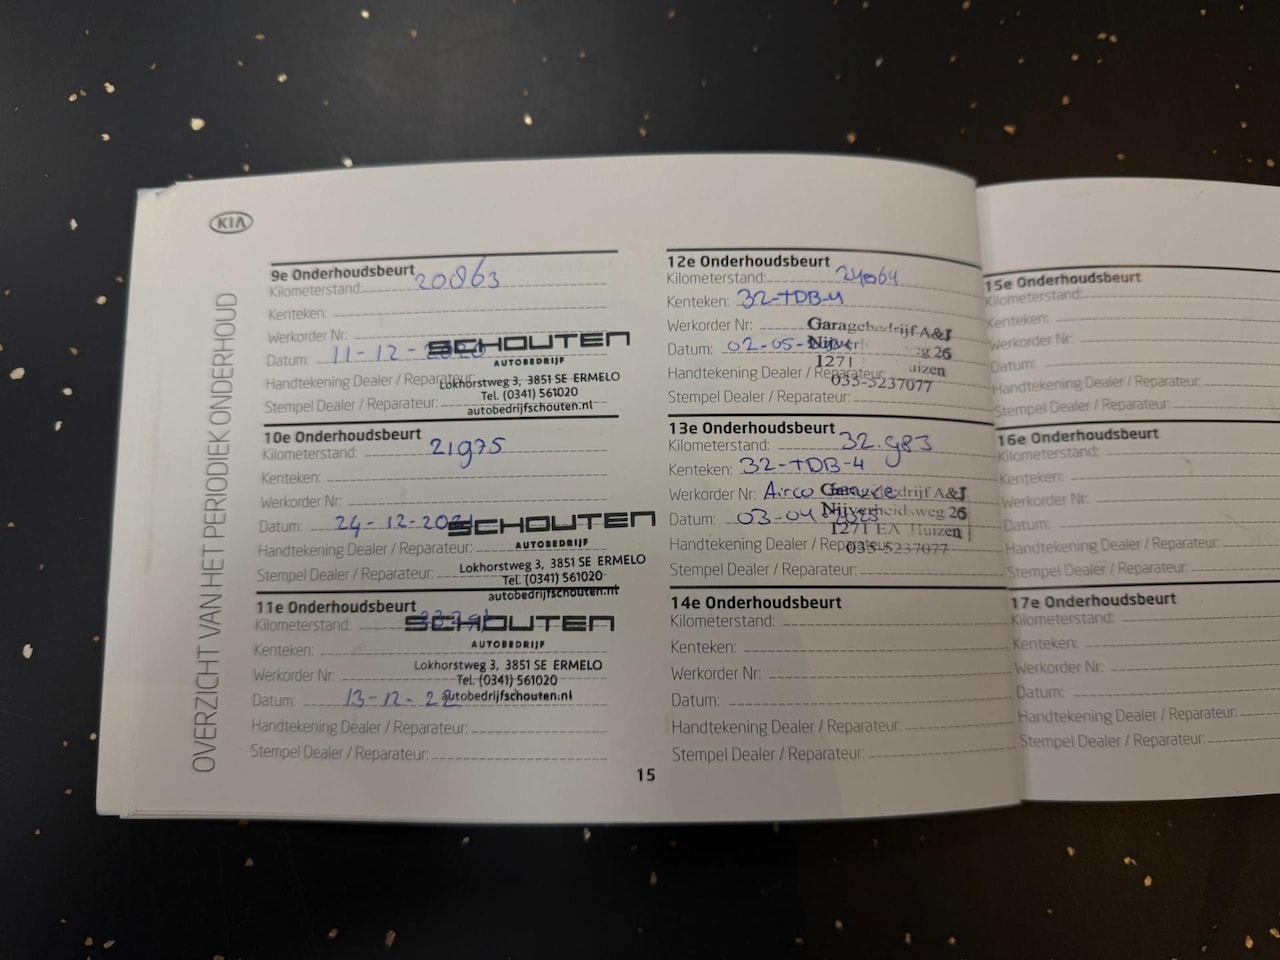 KIA
OVERZICHT VAN HET PERIODIEK ONDERHOUD
9e Onderhoudsbeurt
Kilometerstand: 20863
Kenteken:
Werkorder Nr:
Datum: 11-12-
Handtekening Dealer / Reparateur:
Stempel Dealer / Reparateur:
SCHOUTEN
AUTOBEDRIJF
Lokhorstweg 3, 3851 SE ERMELO
Tel. (0341) 561020
autobedrijfschouten.nl
10e Onderhoudsbeurt
Kilometerstand: 21975
Kenteken:
Werkorder Nr:
Datum: 24-12-2021
Handtekening Dealer / Reparateur:
Stempel Dealer / Reparateur:
SCHOUTEN
AUTOBEDRIJF
Lokhorstweg 3, 3851 SE ERMELO
Tel. (0341) 561020
autobedrijfschouten.nl
11e Onderhoudsbeurt
Kilometerstand:
Kenteken:
Werkorder Nr:
Datum: 13-12-22
Handtekening Dealer / Reparateur:
Stempel Dealer / Reparateur:
SCHOUTEN
AUTOBEDRIJF
Lokhorstweg 3, 3851 SE ERMELO
Tel. (0341) 561020
autobedrijfschouten.nl
12e Onderhoudsbeurt
Kilometerstand: 24064
Kenteken: 32-TDB-4
Werkorder Nr:
Datum: 02-05-
Handtekening Dealer / Reparateur:
Stempel Dealer / Reparateur:
Garagebedrijf A&J
weg 26
1271
035-5237077
13e Onderhoudsbeurt
Kilometerstand: 32.983
Kenteken: 32-TDB-4
Werkorder Nr: Airco Service
Datum: 03-04-2025
Handtekening Dealer / Reparateur:
Stempel Dealer / Reparateur:
Garagebedrijf A&J
Nijverheidsweg 26
1271 EA Huizen
035-5237077
14e Onderhoudsbeurt
Kilometerstand:
Kenteken:
Werkorder Nr:
Datum:
Handtekening Dealer / Reparateur:
Stempel Dealer / Reparateur:
15
15e Onderhoudsbeurt
Kilometerstand:
Kenteken:
Werkorder Nr:
Datum:
Handtekening Dealer / Reparateur:
Stempel Dealer / Reparateur:
16e Onderhoudsbeurt
Kilometerstand:
Kenteken:
Werkorder Nr:
Datum:
Handtekening Dealer / Reparateur:
Stempel Dealer / Reparateur:
17e Onderhoudsbeurt
Kilometerstand:
Kenteken:
Werkorder Nr:
Datum:
Handtekening Dealer / Reparateur:
Stempel Dealer / Reparateur: